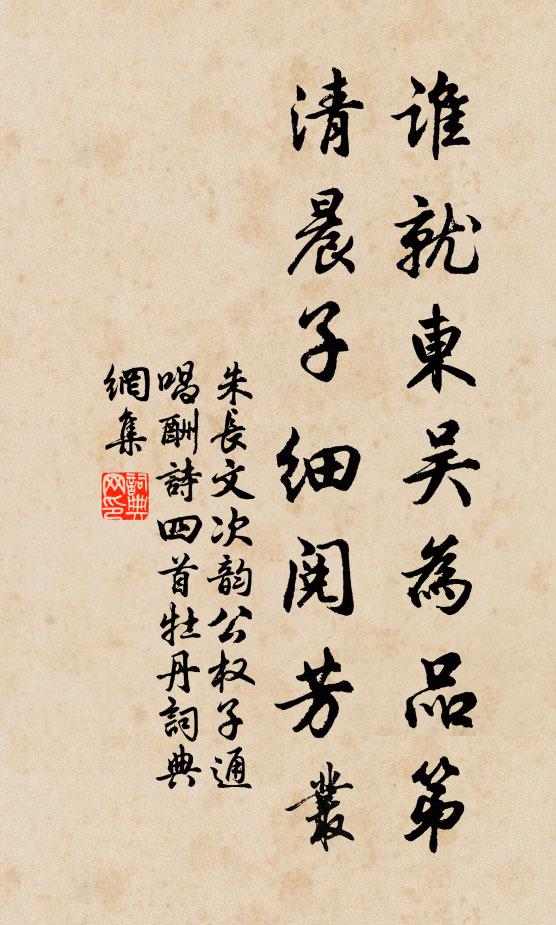 誰就東吳為品第
清晨子細閱芳叢
朱長文次韵公权子通
唱酬詩四首牡丹詞典
網集
詞典
网印